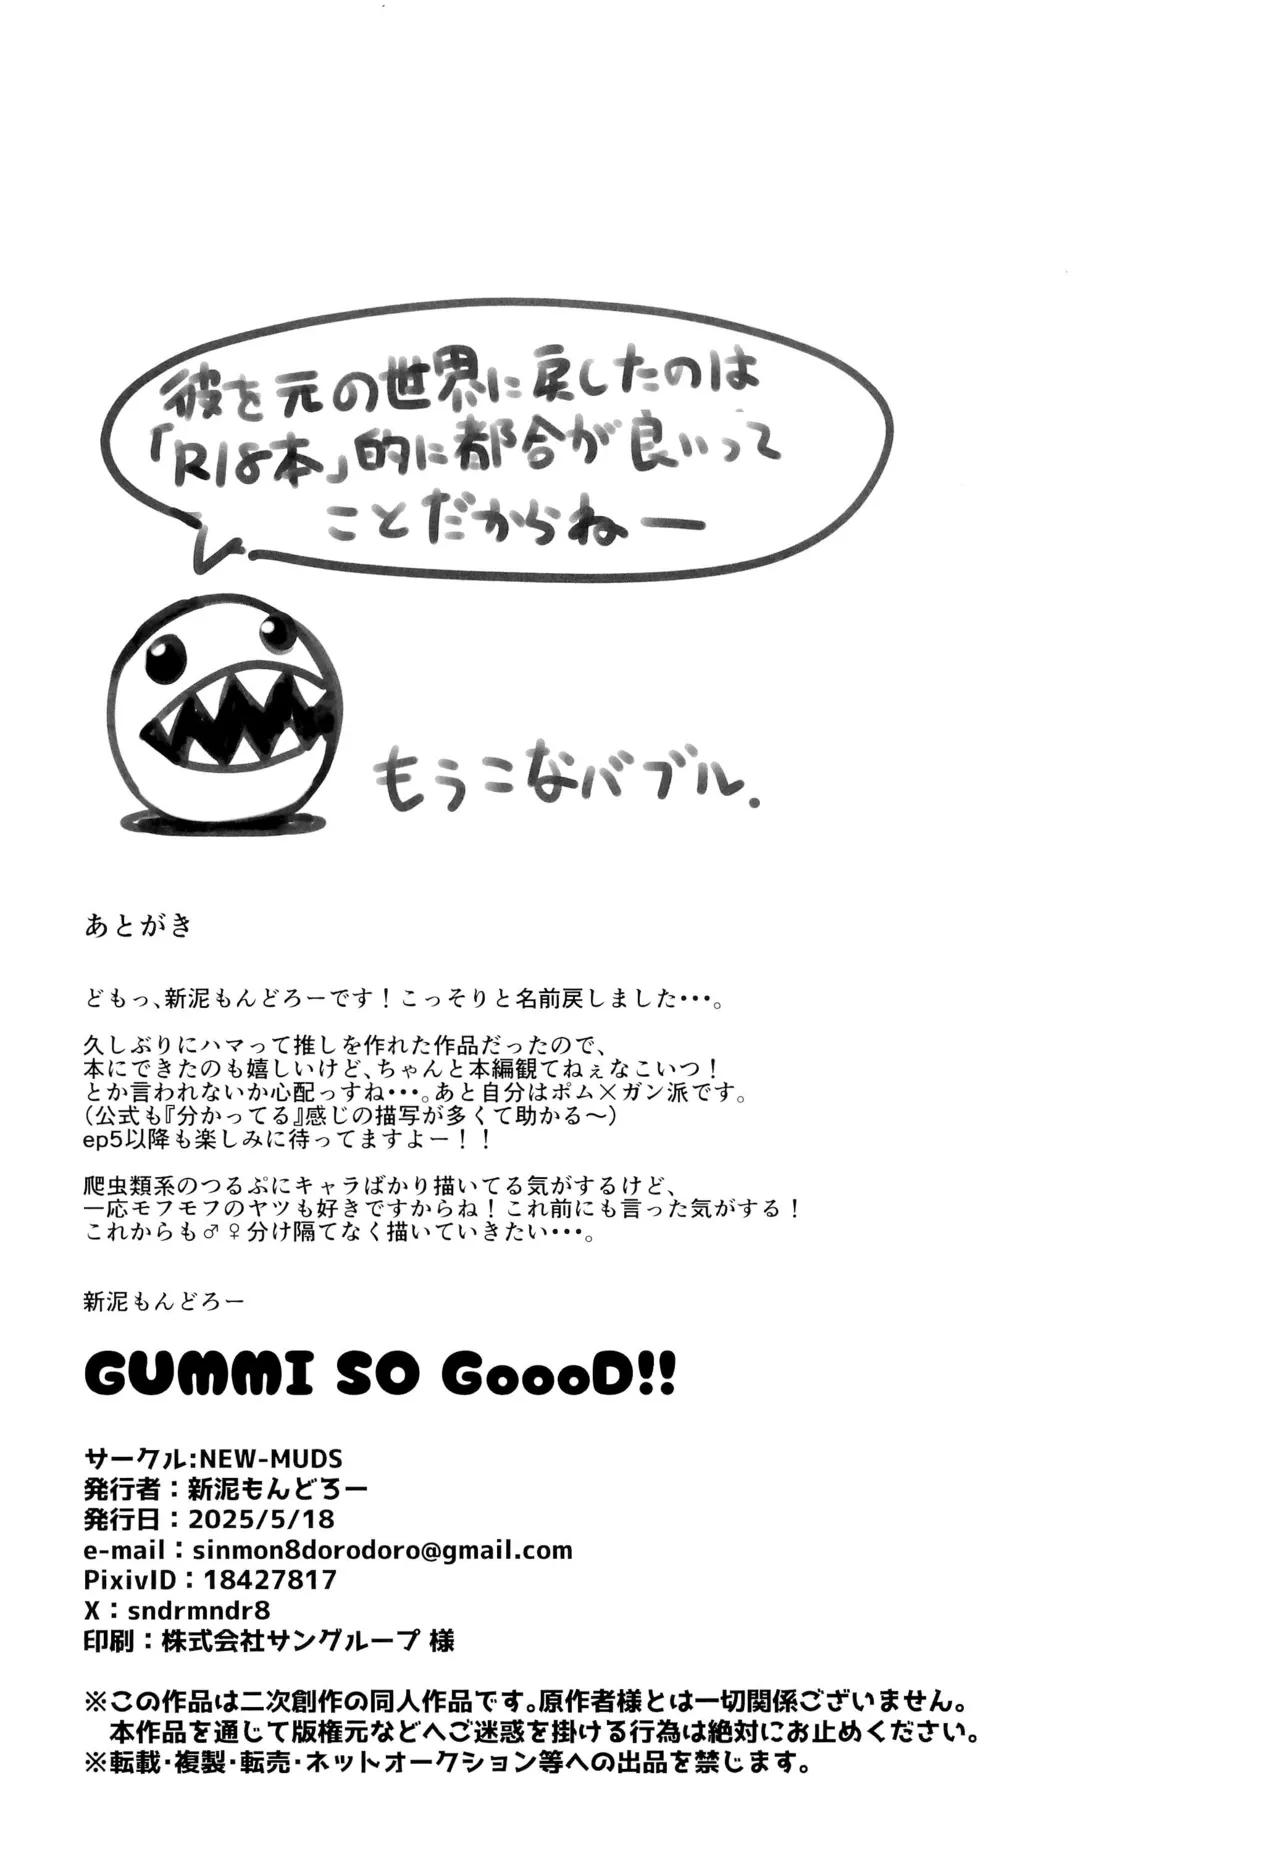 彼を元の世界に戻したのは
「R18本」的に都合が良いって
ことだからねー
もうこなバブル.
あとがき
どもっ、新泥もんどろーです！こっそりと名前戻しました・・・。
久しぶりにハマって推しを作れた作品だったので、
本にできたのも嬉しいけど、ちゃんと本編観てねぇなこいつ！
とか言われないか心配っすね・・・。あと自分はポム×ガン派です。
（公式も『分かってる』感じの描写が多くて助かる〜）
ep5以降も楽しみに待ってますよー！！
爬虫類系のつるぷにキャラばかり描いてる気がするけど、
一応モフモフのヤツも好きですからね！これ前にも言った気がする！
これからも♂♀分け隔てなく描いていきたい・・・。
新泥もんどろー
GUMMI SO GoooD!!
サークル:NEW-MUDS
発行者：新泥もんどろー
発行日：2025/5/18
e-mail：sinmon8dorodoro@gmail.com
PixivID：18427817
X：sndrmndr8
印刷：株式会社サングループ 様
※この作品は二次創作の同人作品です。原作者様とは一切関係ございません。
本作品を通じて版権元などへご迷惑を掛ける行為は絶対にお止めください。
※転載・複製・転売・ネットオークション等への出品を禁じます。